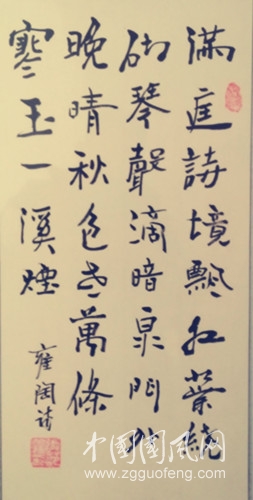 滿庭詩境飄紅葉繞
砌琴聲滴暗泉門外
晚晴秋色老萬條
寒玉一溪煙
雍陶詩
中国国风网
www.zgguofeng.com